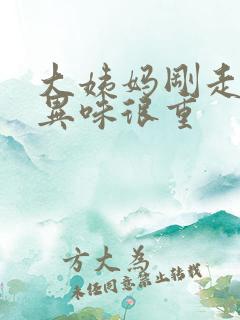 大姨妈刚走
异味很重
方大为
未经同意禁止转载